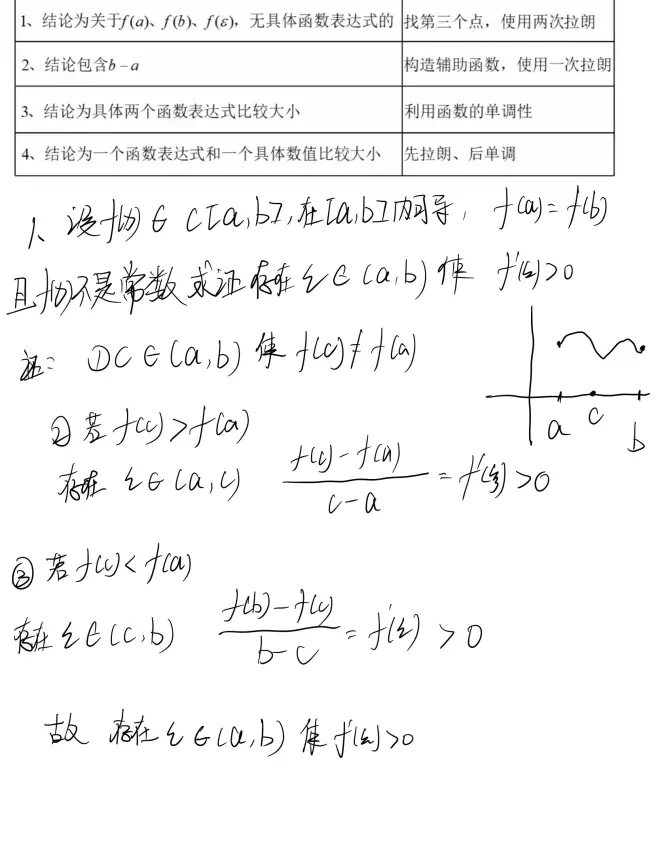 1、结论为关于f(a)、f(b)、f(ε),无具体函数表达式的 找第三个点,使用两次拉朗
2、结论包含b－a 构造辅助函数,使用一次拉朗
3、结论为具体两个函数表达式比较大小 利用函数的单调性
4、结论为一个函数表达式和一个具体数值比较大小 先拉朗、后单调
1、设f(x) ∈ C[a,b],在[a,b]内可导, f(a)=f(b)
且f(x)不是常数 求证 存在 ξ∈(a,b) 使 f'(ξ)>0
证: ①C∈(a,b) 使 f(c)≠f(a)
②若 f(c)>f(a)
存在 ξ∈(a,c) \frac{f(c)-f(a)}{c-a} = f'(ξ)>0
a c b
③若 f(c)<f(a)
存在 ξ∈(c,b) \frac{f(b)-f(c)}{b-c} = f'(ξ) >0
故 存在 ξ∈(a,b) 使 f'(ξ)>0